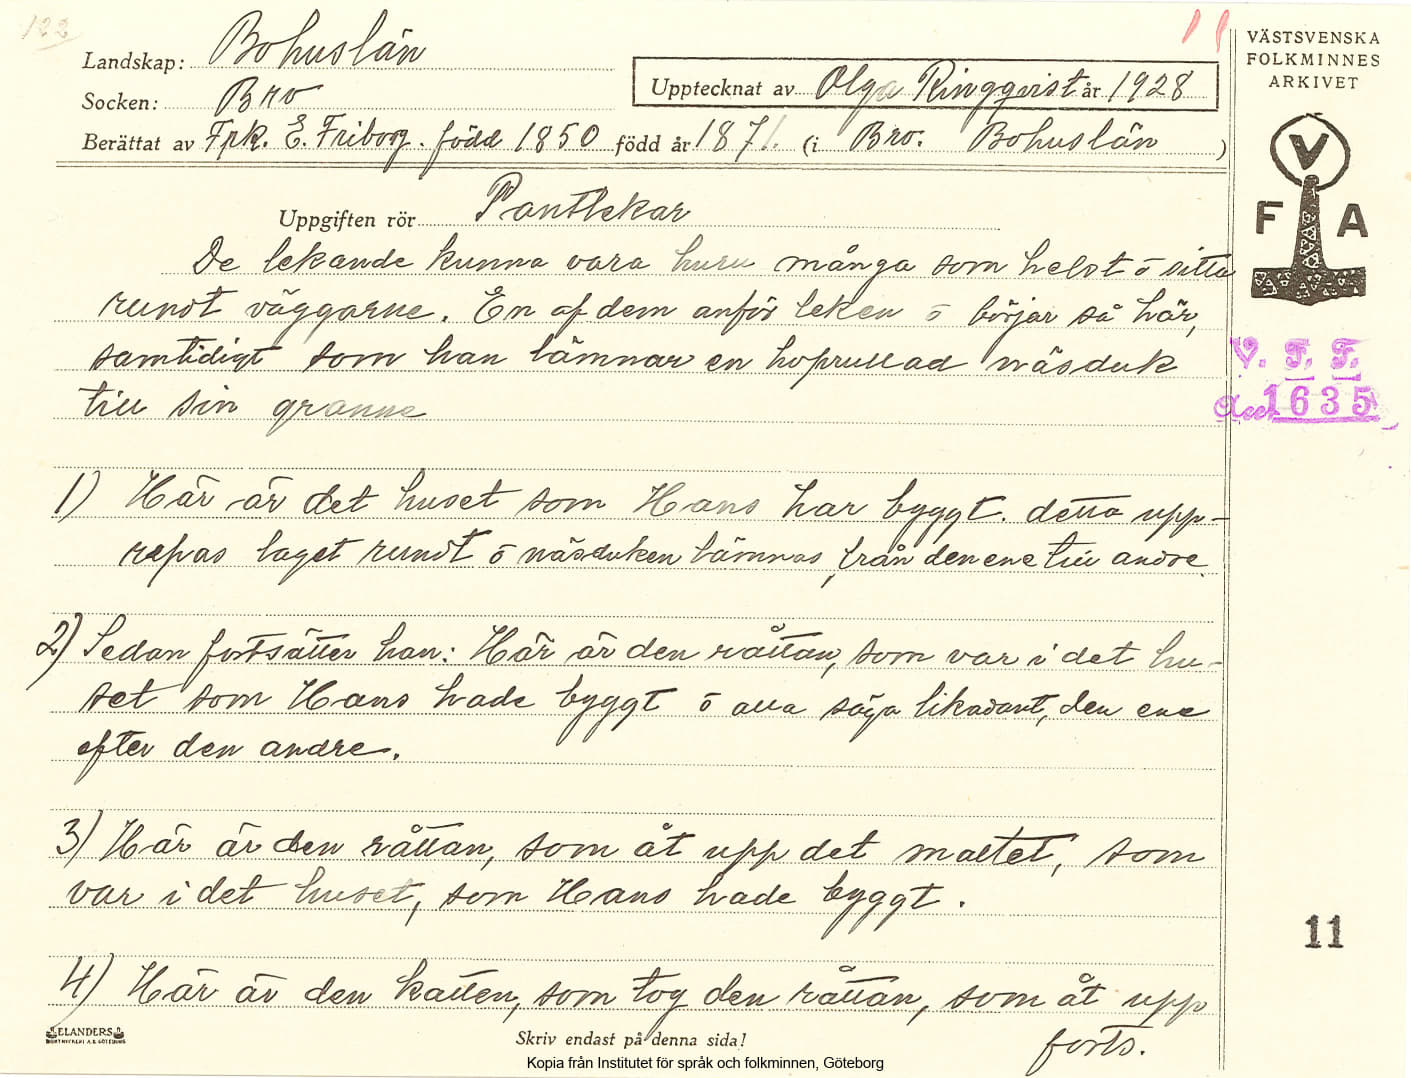 122
11
Landskap: Bohuslän
Socken: Bro
Upptecknat av Olga Ringqvist år 1928
Berättat av Frk. E. Friborg. född 1850 född år 1871. (i Bro. Bohuslän )
VÄSTSVENSKA
FOLKMINNES
ARKIVET
V
F A
V. F. F.
Acc. 1635
Uppgiften rör Pantlekar
De lekande kunna vara huru många som helst ō sitta
rundt väggarne. En af dem anför leken ō börjar så här,
samtidigt som han lämnar en hoprullad näsduk
till sin granne
1) Här är det huset som Hans har byggt. detta upp-
repas laget rundt ō näsduken lämnas från den ene till andre.
2) Sedan fortsätter han: Här är den råttan, som var i det hu-
set som Hans hade byggt ō alla säga likadant, den ene
efter den andre.
3) Här är den råttan, som åt upp det maltet, som
var i det huset, som Hans hade byggt.
11
4) Här är den katten, som tog den råttan, som åt upp
forts.
ELANDERS
Skriv endast på denna sida!
Kopia från Institutet för språk och folkminnen, Göteborg